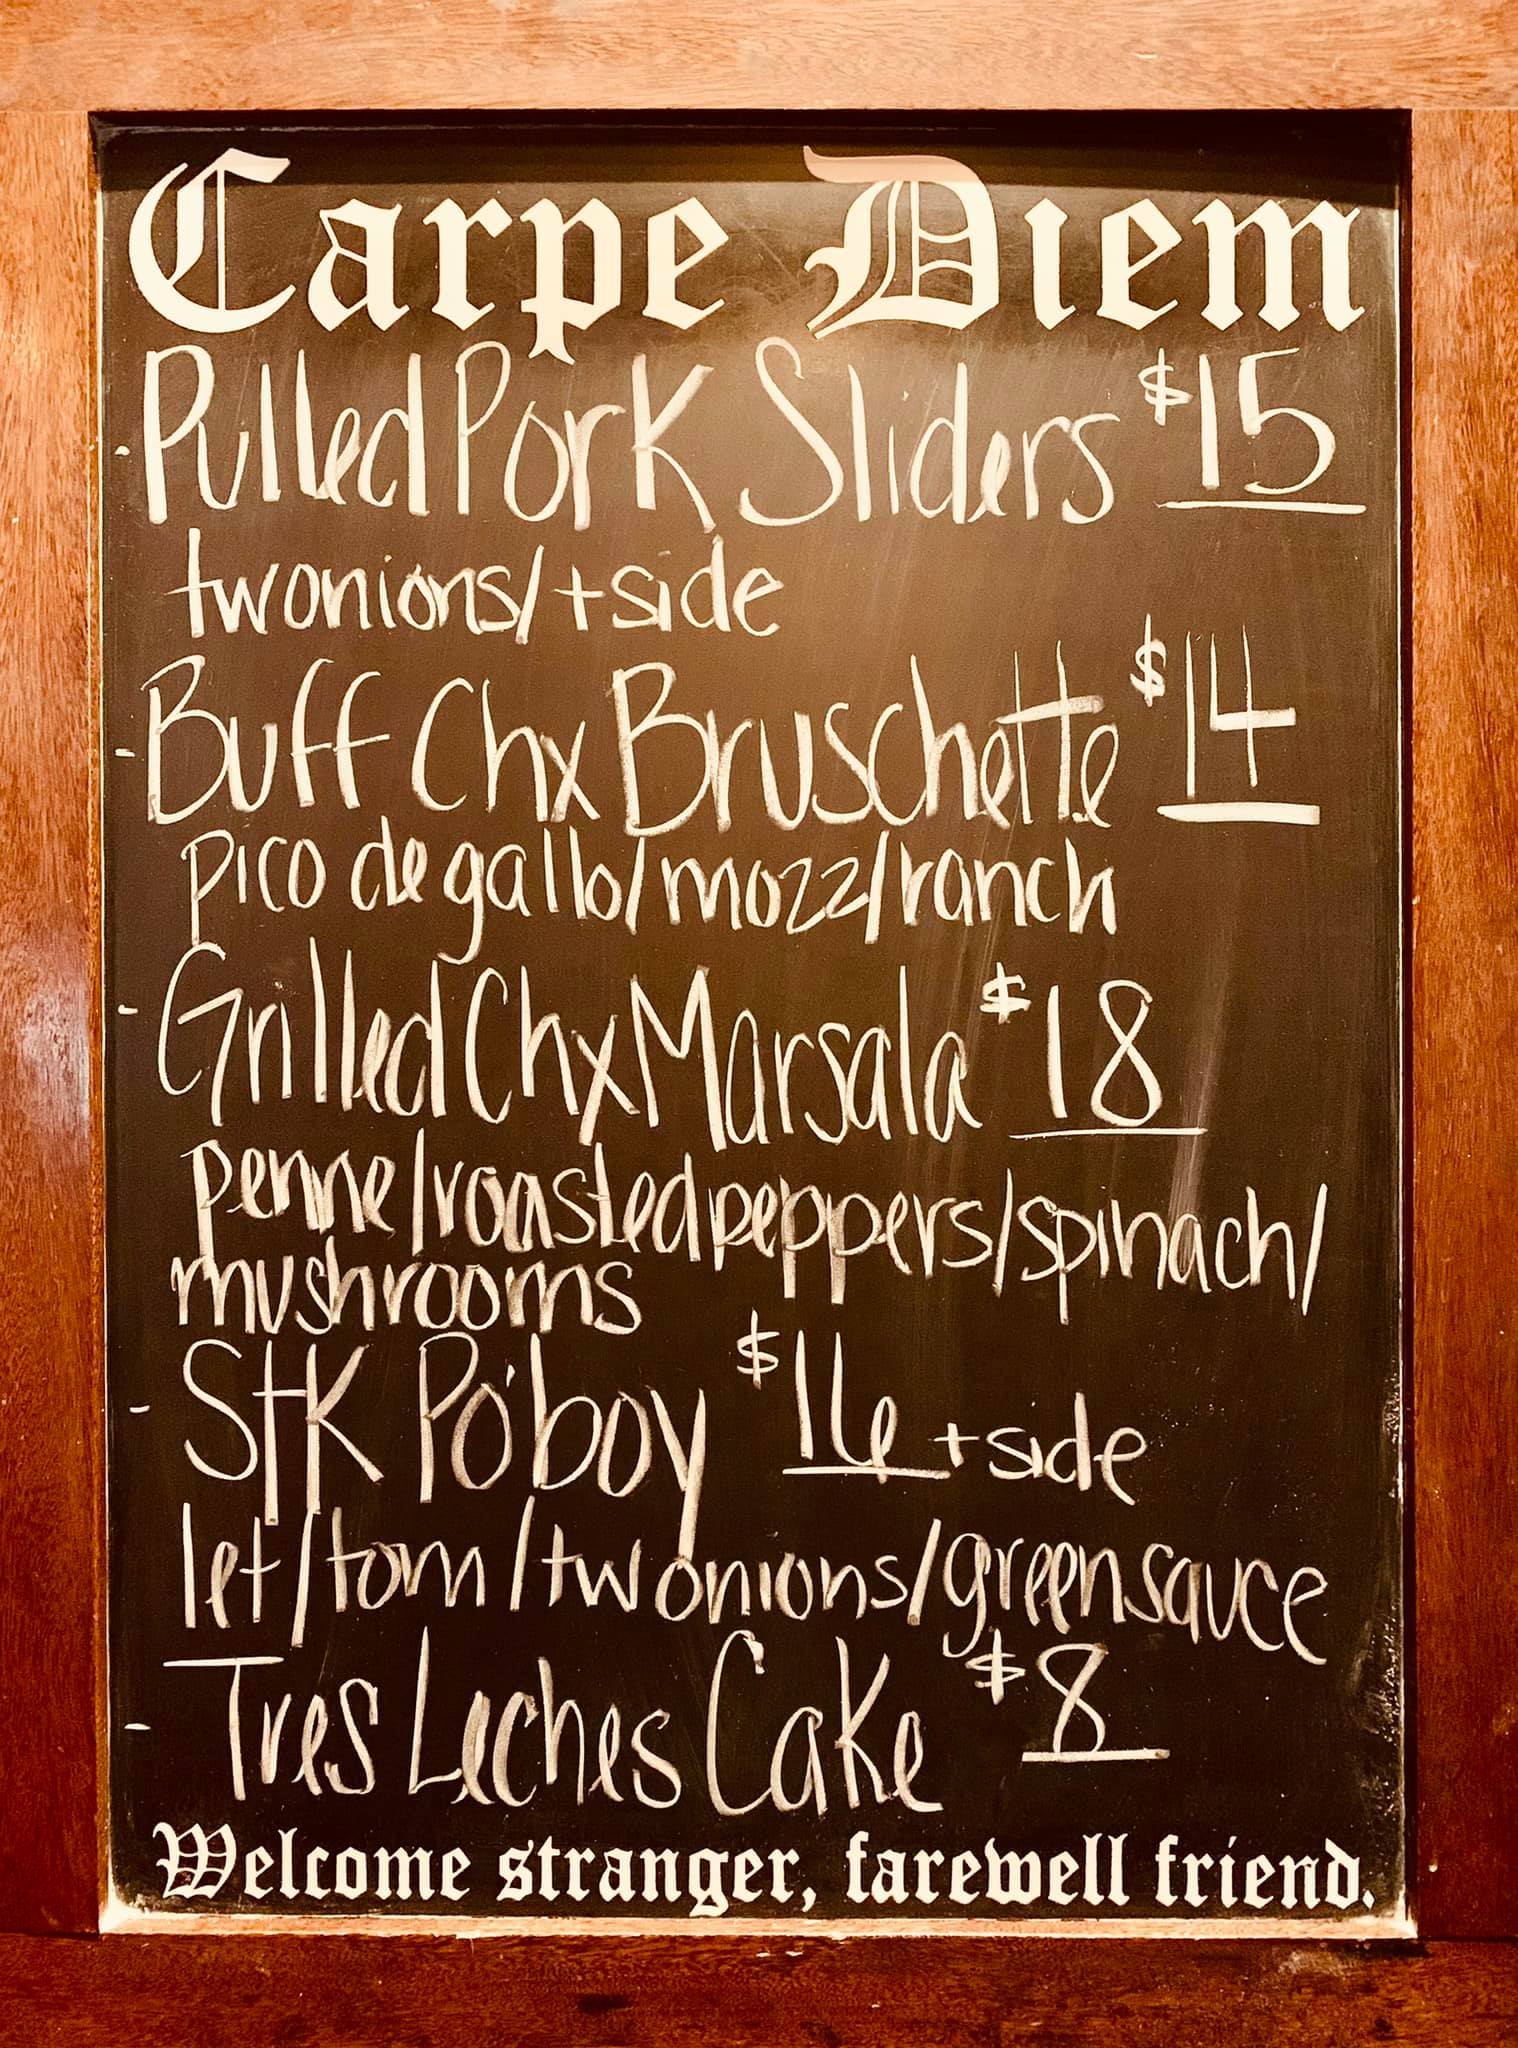 Carpe Diem
- Pulled Pork Sliders $15
twonions/+side
- Buff Chx Bruschette $14
pico de gallo/mozz/ranch
- Grilled Chx Marsala $18
penne/roasted peppers/spinach/
mushrooms
- Stk Po'boy $16 +side
let/tom/twonions/green sauce
- Tres Leches Cake $8
Welcome stranger, farewell friend.